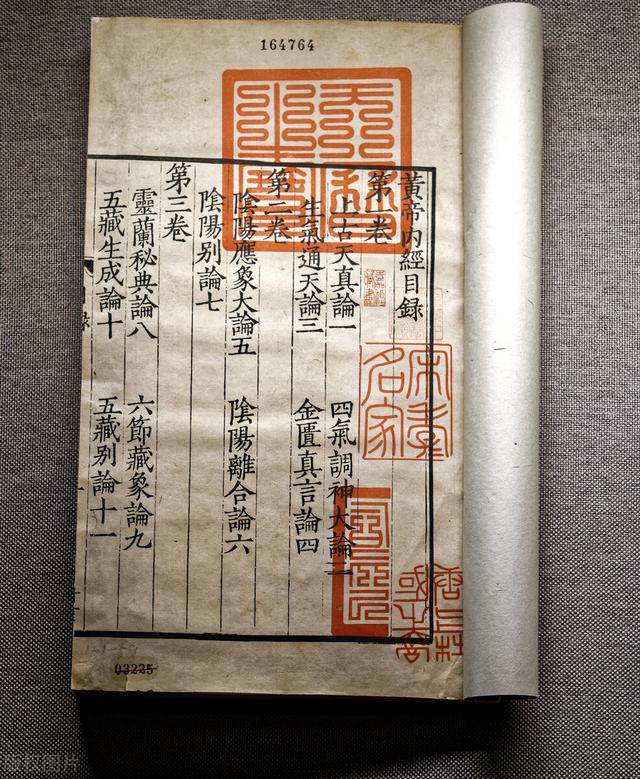 164764
黃帝內經目錄
第一卷
上古天真論一 四氣調神大論二
生氣通天論三 金匱真言論四
第二卷
陰陽應象大論五 陰陽離合論六
陰陽别論七
第三卷
靈蘭秘典論八 六節藏象論九
五藏生成論十 五藏别論十一
名家
03225
版权图片